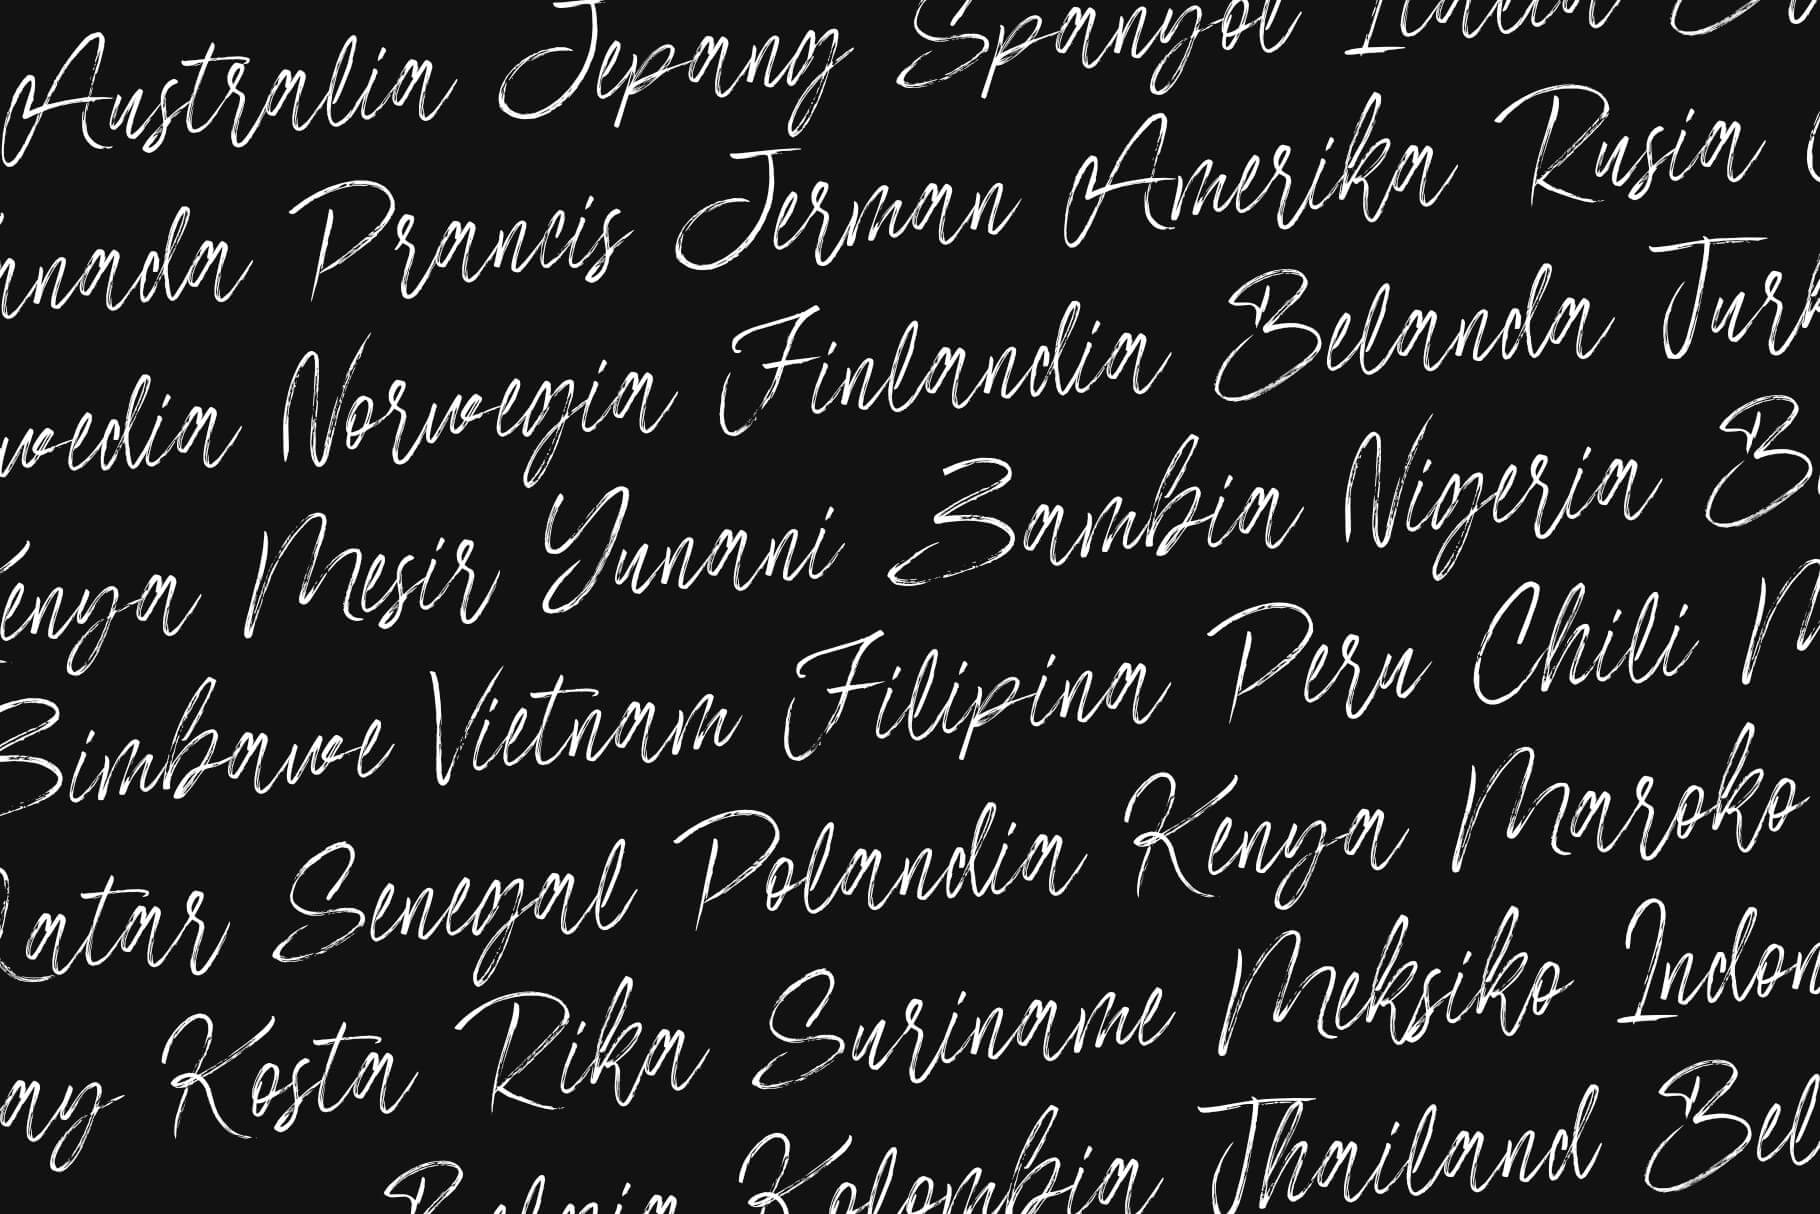 Australia Jepang Spanyol Italia
nada Prancis Jerman Amerika Rusia
wedia Norwegia Finlandia Belanda Turk
enya Mesir Yunani Zambia Nigeria B
Zimbawe Vietnam Filipina Peru Chili M
Qatar Senegal Polandia Kenya Maroko
ay Kosta Rika Suriname Meksiko Indon
Kolombia Thailand Bel